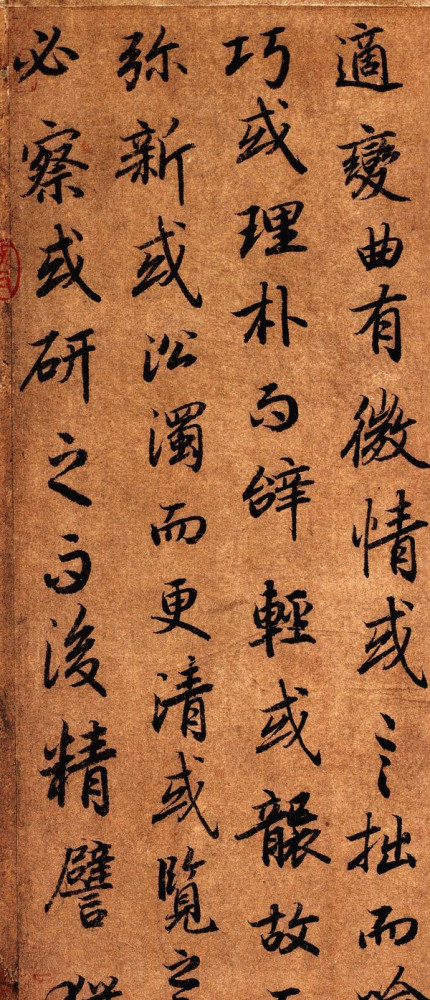 適變曲有微情或言拙而喻
巧或理朴而辝輕或襲故
弥新或㳂濁而更清或覽之
必察或研之而後精譬